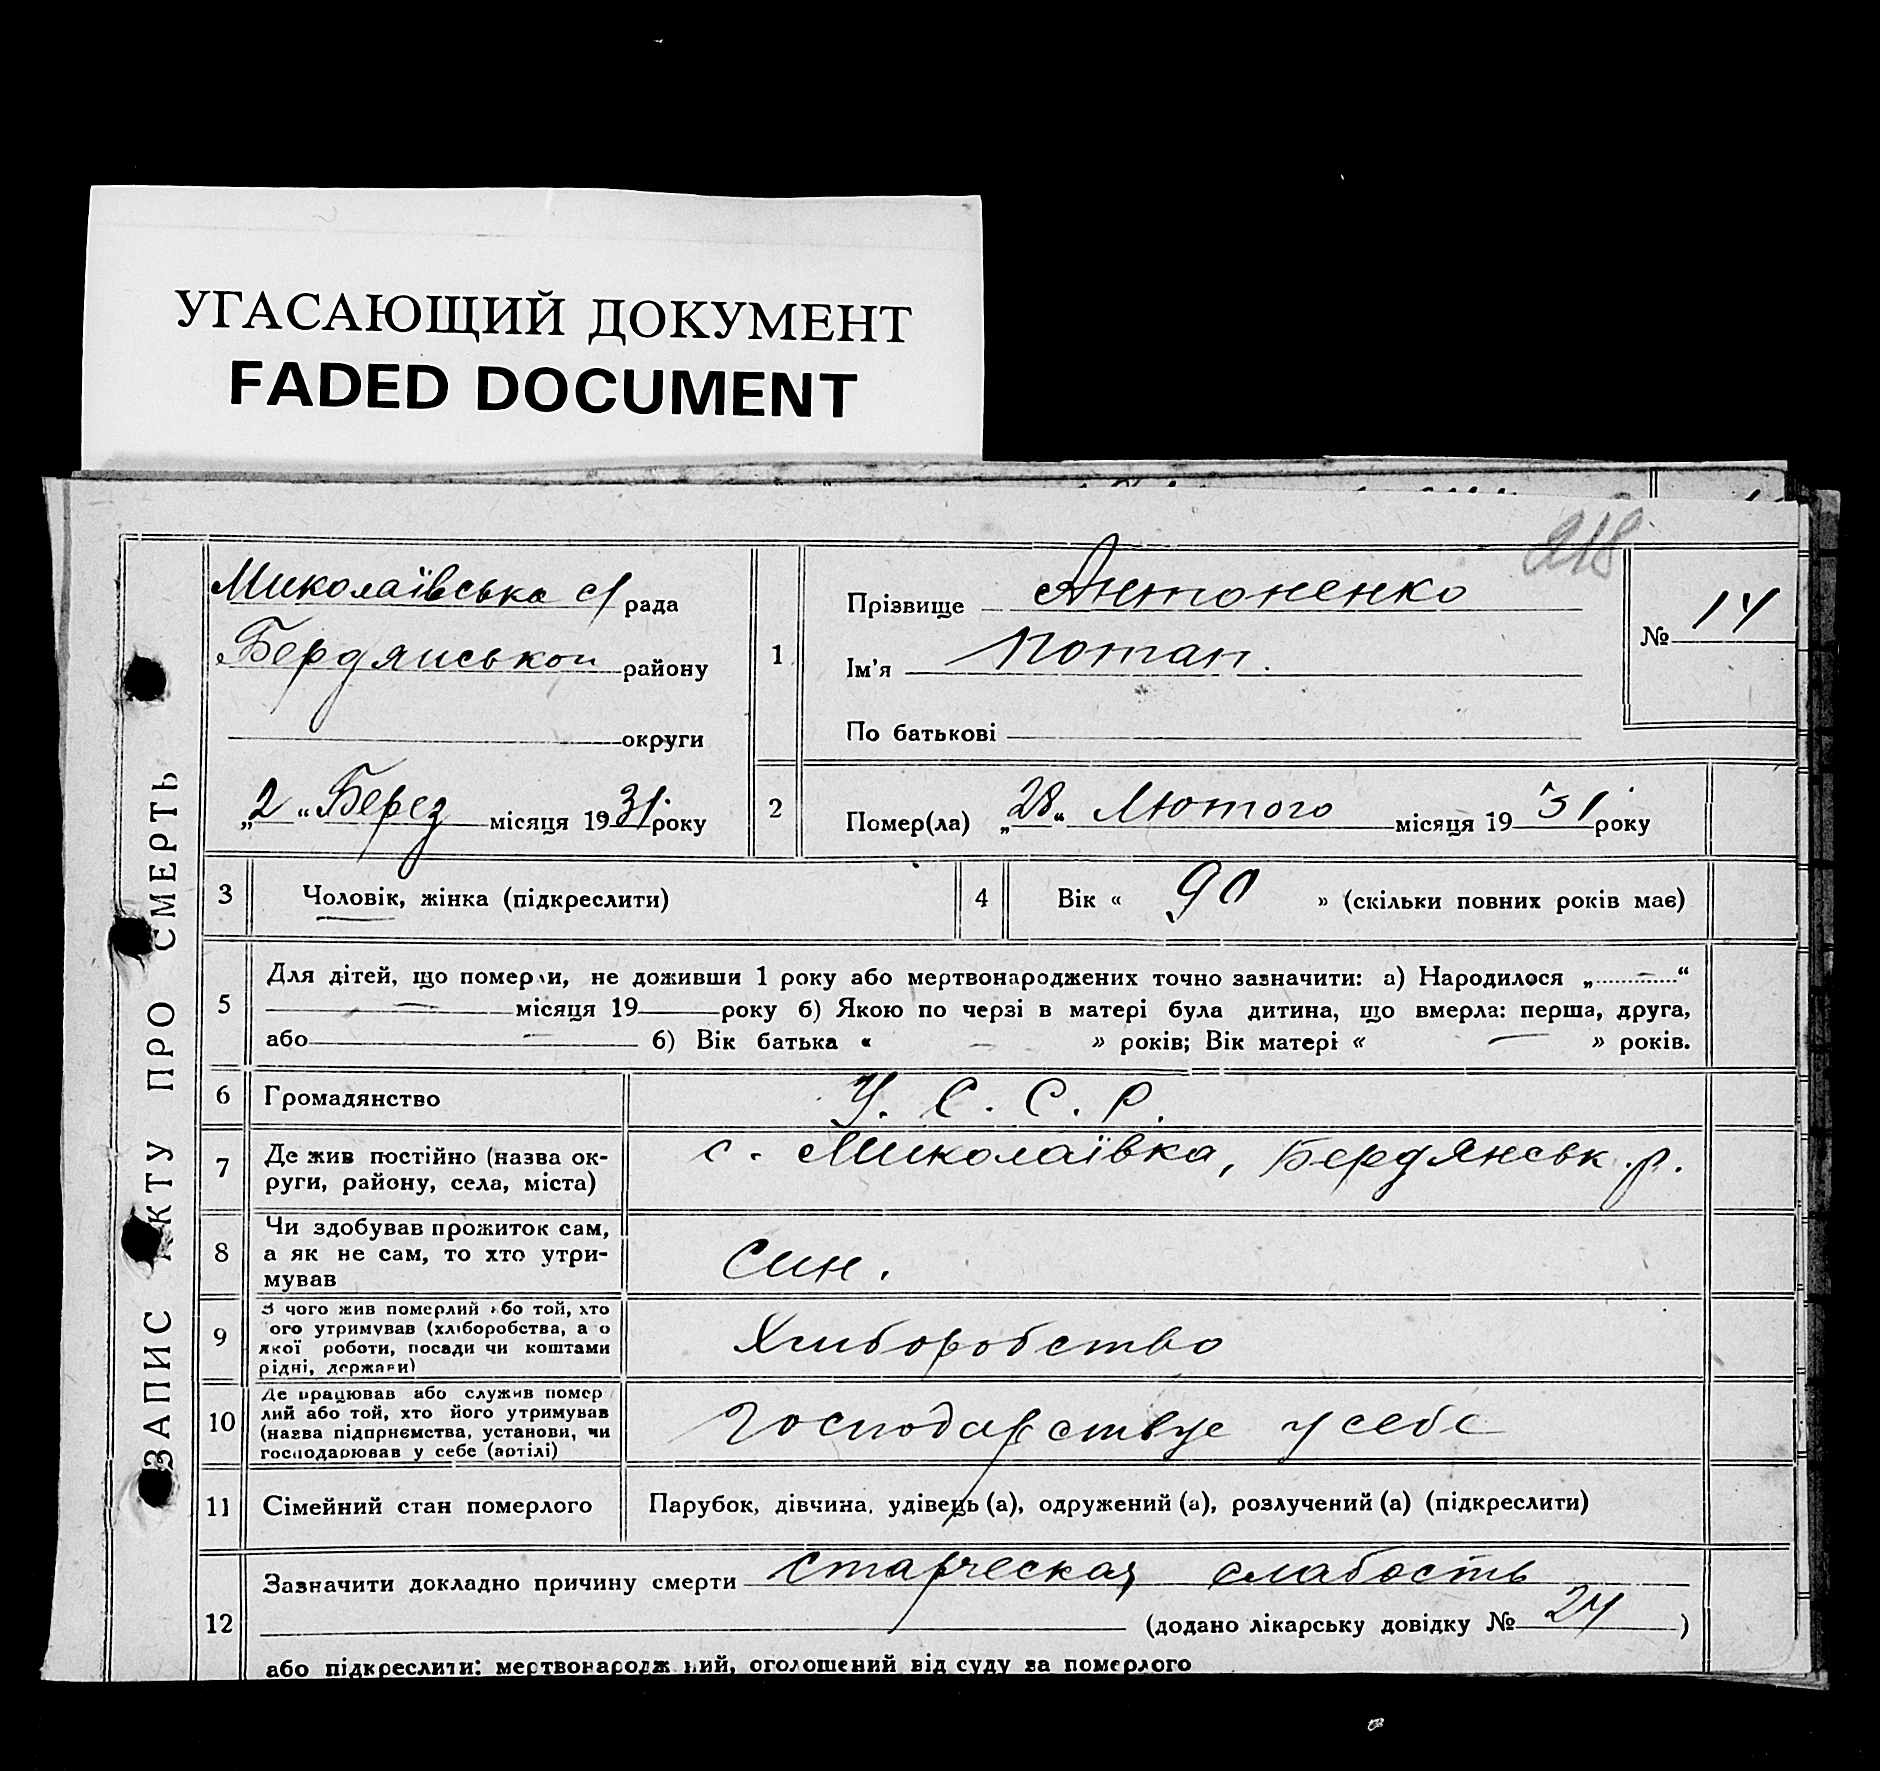 УГАСАЮЩИЙ ДОКУМЕНТ
FADED DOCUMENT
218
ЗАПИС АКТУ ПРО СМЕРТЬ
Миколаївська с/рада
Бердянськой району
округи
„2“ Берез місяця 1931 року
1
Прізвище Антоненко
Ім'я Потап.
По батькові
№ 14
2
Помер(ла) „28“ Лютого місяця 1931 року
3 Чоловік, жінка (підкреслити)
4 Вік « 90 » (скільки повних років має)
5
Для дітей, що померли, не доживши 1 року або мертвонароджених точно зазначити: а) Народилося „ — “
— місяця 19 року б) Якою по черзі в матері була дитина, що вмерла: перша, друга,
або — б) Вік батька « — » років; Вік матері « — » років.
6 Громадянство У. С. С. Р.
7 Де жив постійно (назва ок-
руги, району, села, міста)
с. Миколаївка, Бердянськ. р.
8 Чи здобував прожиток сам,
а як не сам, то хто утри-
мував
син.
9 З чого жив померлий або той, хто
ого утримував (хліборобства, а о
якої роботи, посади чи коштами
рідні, держави)
Хлиборобство
10 Де працював або служив помер
лий або той, хто його утримував
(назва підприємства, установи, чи
господарював у себе (артілі)
Господарствує у себе
11 Сімейний стан померлого
Парубок, дівчина, удівець (а), одружений (а), розлучений (а) (підкреслити)
12
Зазначити докладно причину смерти старческая слабость
(додано лікарську довідку № 24 )
або підкреслити: мертвонароджений, оголошений від суду за померлого